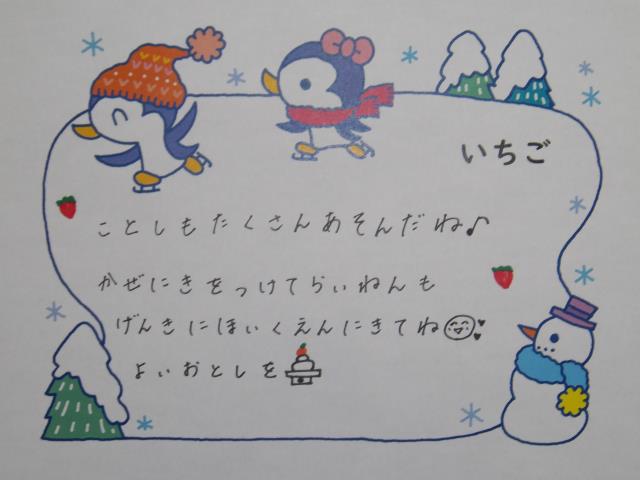 いちご
ことしもたくさんあそんだね♪
かぜにきをつけてらいねんも
げんきにほいくえんにきてね
よいおとしを